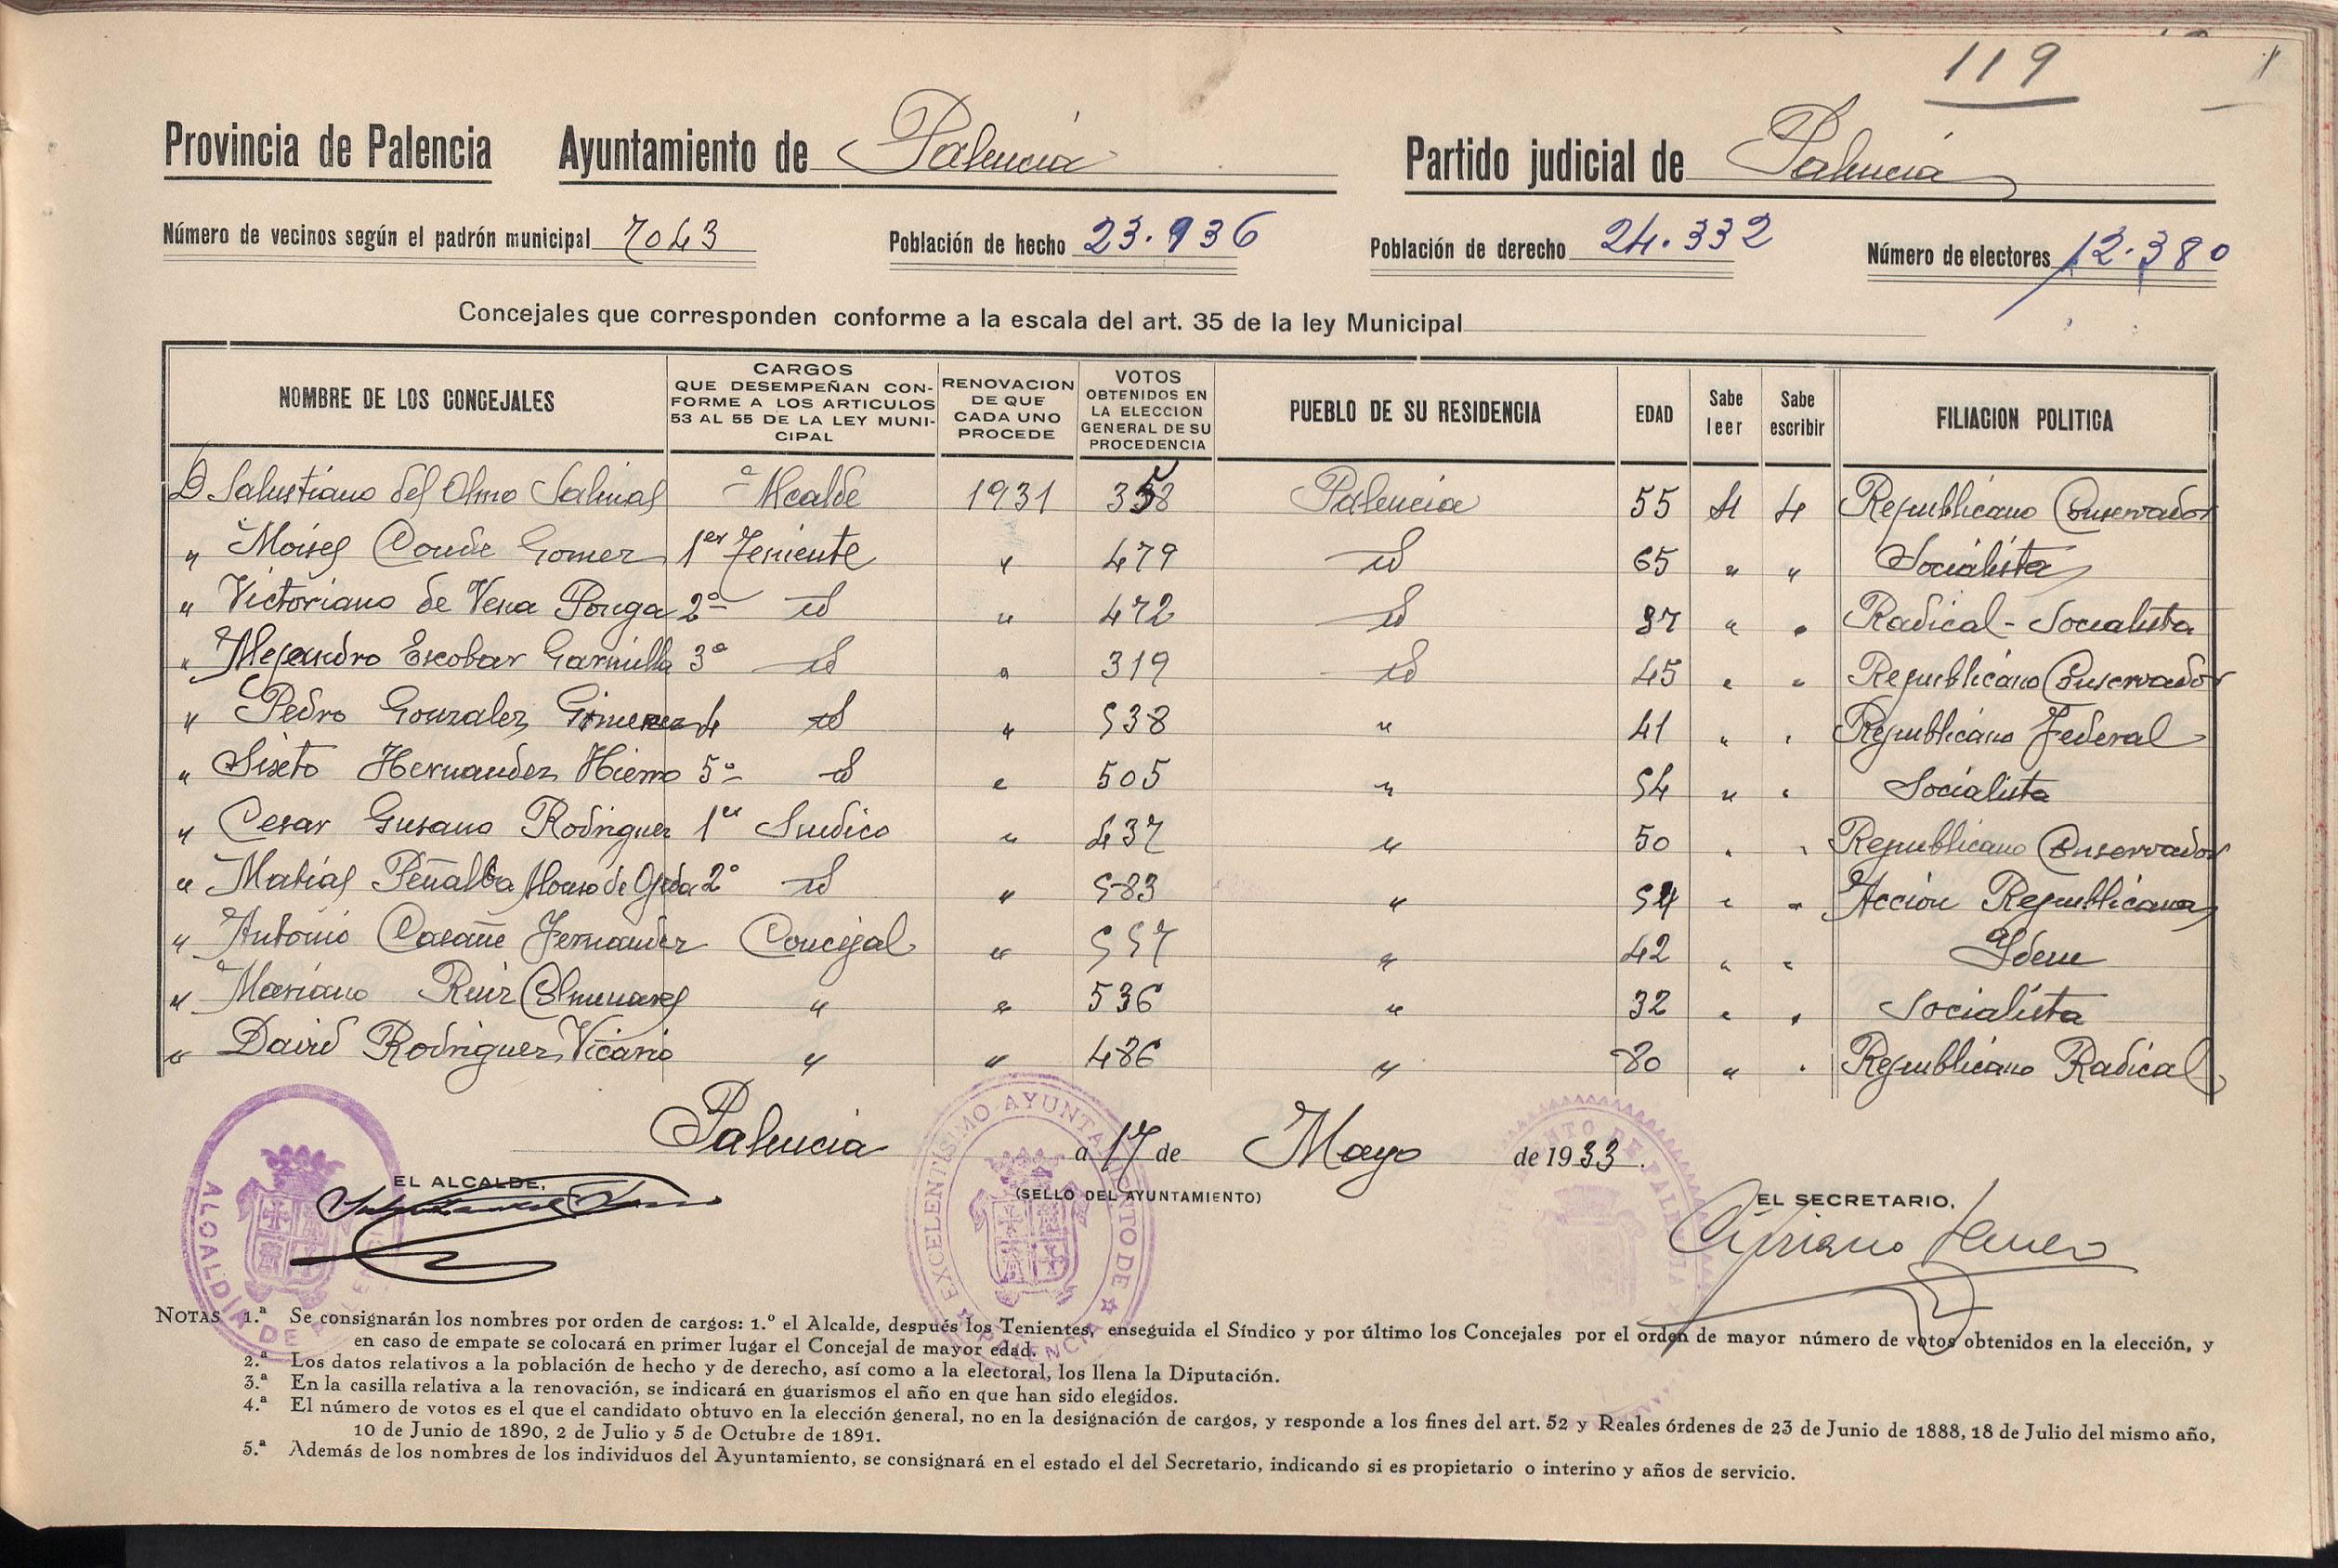 119
Provincia de Palencia Ayuntamiento de Palencia Partido judicial de Palencia
Número de vecinos según el padrón municipal 7043 Población de hecho 23.936 Población de derecho 24.332 Número de electores 12.380
Concejales que corresponden conforme a la escala del art. 35 de la ley Municipal
NOMBRE DE LOS CONCEJALES
CARGOS
QUE DESEMPEÑAN CON-
FORME A LOS ARTICULOS
53 AL 55 DE LA LEY MUNI-
CIPAL
RENOVACION
DE QUE
CADA UNO
PROCEDE
VOTOS
OBTENIDOS EN
LA ELECCION
GENERAL DE SU
PROCEDENCIA
PUEBLO DE SU RESIDENCIA
EDAD
Sabe
leer
Sabe
escribir
FILIACION POLITICA
D Salustiano del Olmo Salinas Alcalde 1931 358 Palencia 55 Si Si Republicano Conservador
" Moises Conde Gomez 1er Teniente " 479 id 65 " " Socialista
" Victoriano de Vena Ponga 2º id " 472 id 37 " " Radical-Socialista
" Alejandro Escobar Garmilla 3º id " 319 id 45 " " Republicano Conservador
" Pedro Gonzalez Gimenez 4 id " 538 " 41 " " Republicano Federal
" Sixto Hernandez Hierro 5º id " 505 " 54 " " Socialista
" Cesar Gusano Rodriguez 1er Sindico " 437 " 50 " " Republicano Conservador
" Matias Peñalba Alonso de Ojeda 2º id " 583 " 54 " " Acción Republicana
" Antonio Casañe Fernandez Concejal " 557 " 42 " " Idem
" Mariano Ruiz Colmenares " " 536 " 32 " " Socialista
" David Rodriguez Vicario " " 486 " 80 " " Republicano Radical
Palencia a 17 de Mayo de 1933.
EL ALCALDE,
(SELLO DEL AYUNTAMIENTO)
EL SECRETARIO,
ALCALDÍA DE PALENCIA
EXCELENTÍSIMO AYUNTAMIENTO DE PALENCIA
NOTAS 1.ª Se consignarán los nombres por orden de cargos: 1.º el Alcalde, después los Tenientes, enseguida el Síndico y por último los Concejales por el orden de mayor número de votos obtenidos en la elección, y
en caso de empate se colocará en primer lugar el Concejal de mayor edad.
2.ª Los datos relativos a la población de hecho y de derecho, así como a la electoral, los llena la Diputación.
3.ª En la casilla relativa a la renovación, se indicará en guarismos el año en que han sido elegidos.
4.ª El número de votos es el que el candidato obtuvo en la elección general, no en la designación de cargos, y responde a los fines del art. 52 y Reales órdenes de 23 de Junio de 1888, 18 de Julio del mismo año,
10 de Junio de 1890, 2 de Julio y 5 de Octubre de 1891.
5.ª Además de los nombres de los individuos del Ayuntamiento, se consignará en el estado el del Secretario, indicando si es propietario o interino y años de servicio.